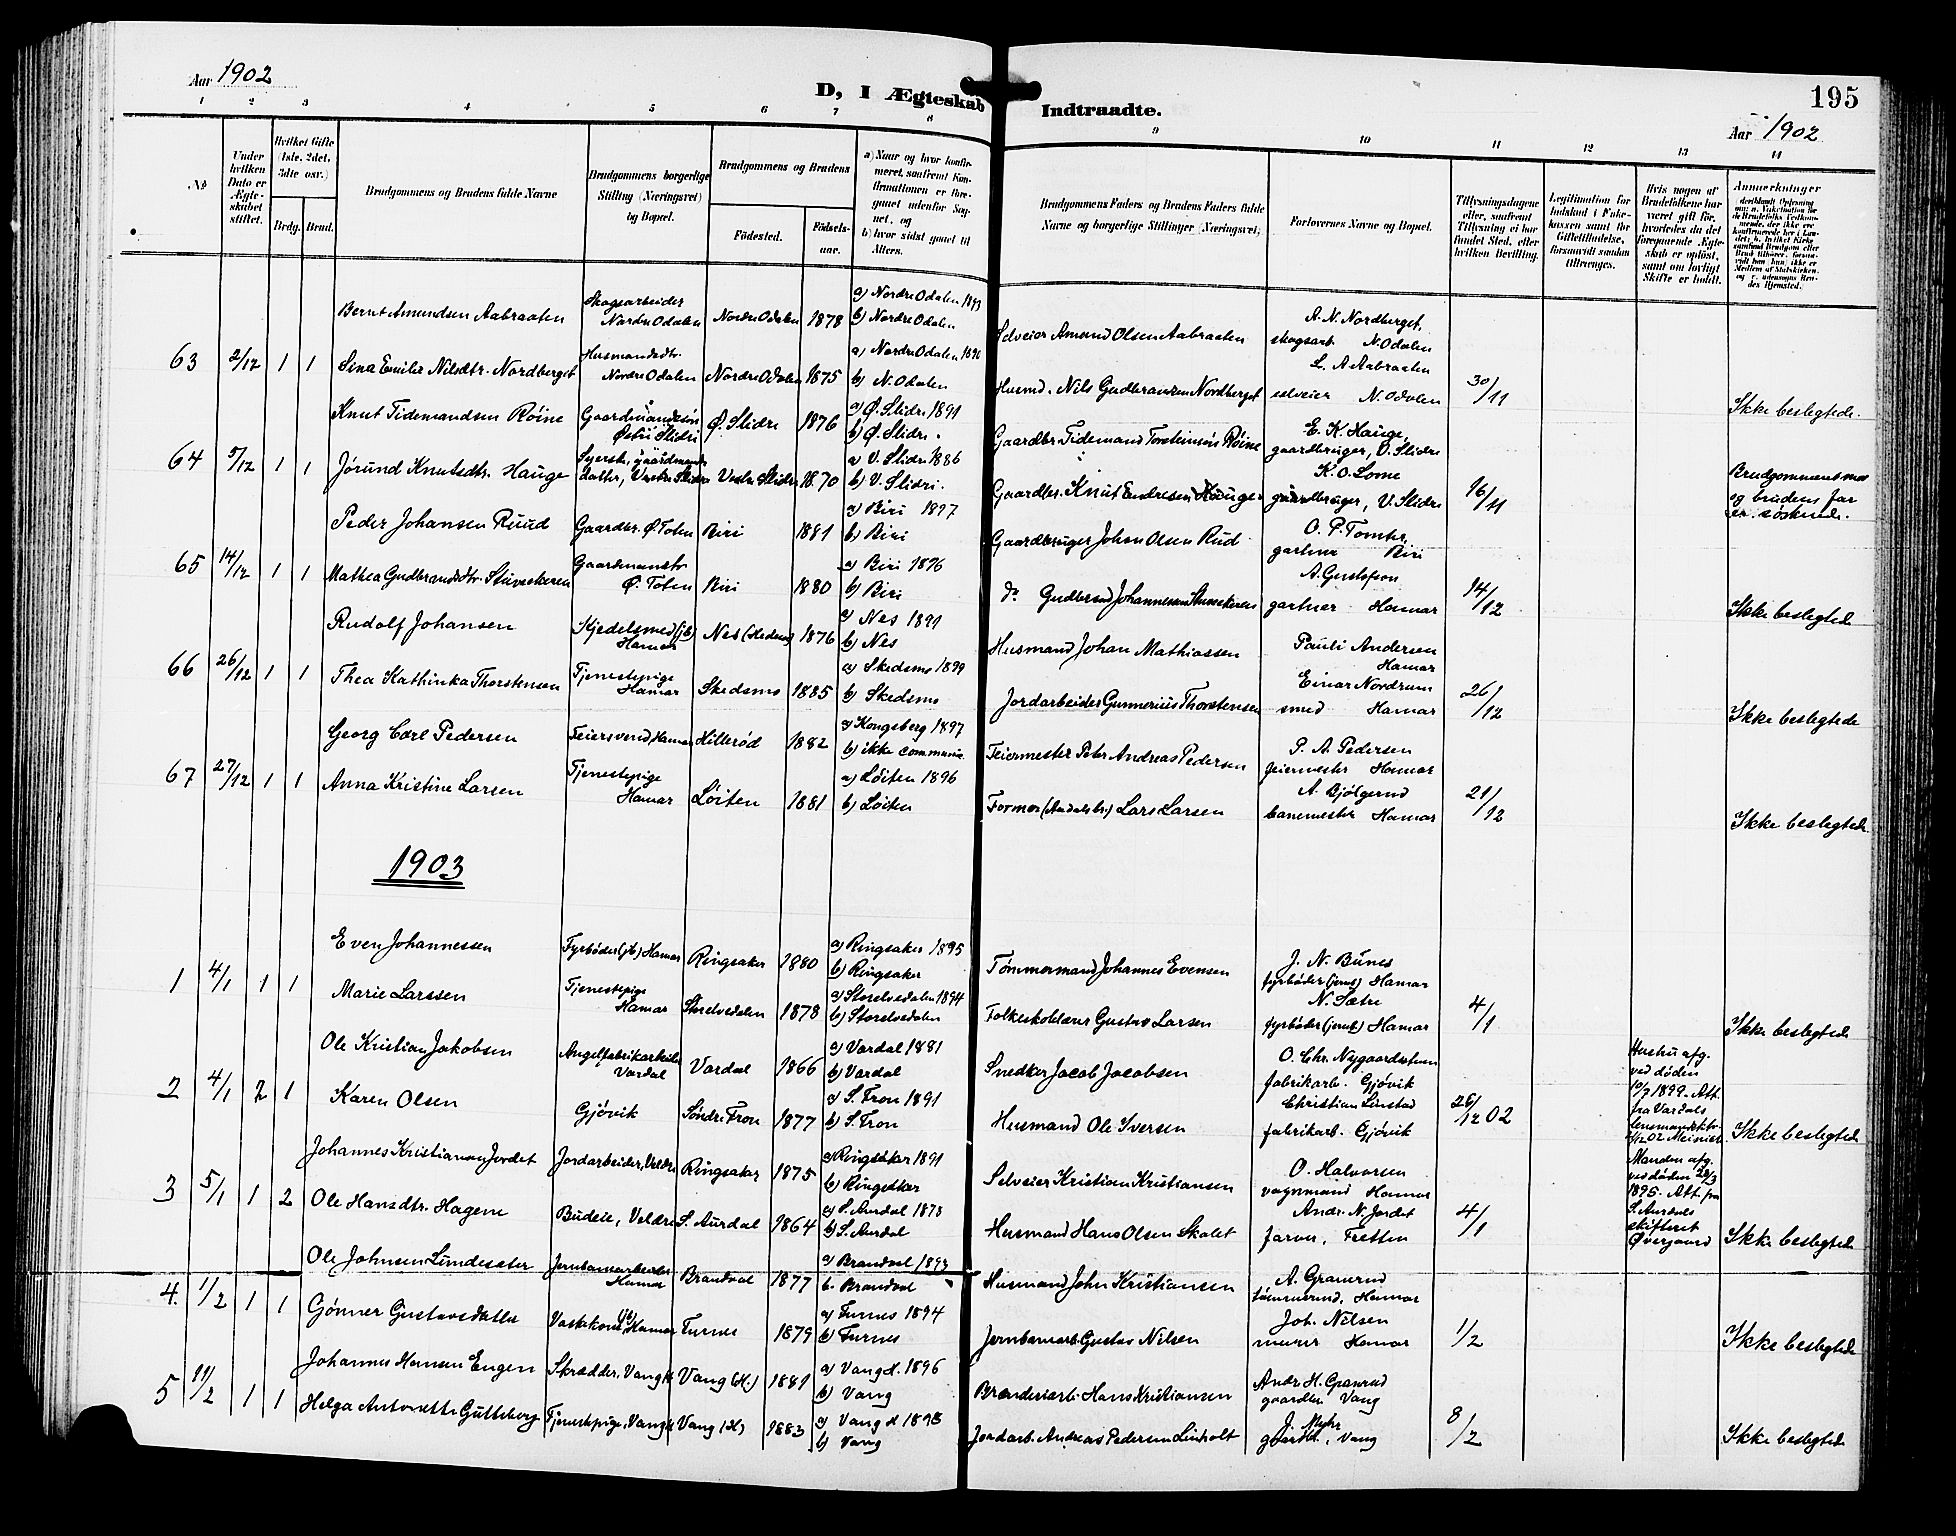 Aar 1902
D, I Ægteskab Indtraadte.
195
Aar 1902
1 2 3 4 5 6 7 8 9 10 11 12 13 14
No
Under hvilken Dato er Ægteskabet stiftet.
Hvilket Gifte (1ste, 2det, 3die osv.)
Brdg. Brud.
Brudgommens og Brudens fulde Navne
Brudgommens borgerlige Stilling (Næringsvei) og Bopæl.
Brudgommens og Brudens
Fødested.
Fødselsaar.
a) Naar og hvor konfirmeret, saafremt Konfirmationen er foregaaet udenfor Sognet, og
b) hvor sidst gaaet til Alters.
Brudgommens Faders og Brudens Faders fulde Navne og borgerlige Stillinger (Næringsvei)
Forlovernes Navne og Bopæl.
Tillysningsdagene eller, saafremt Tillysning ei har fundet Sted, efter hvilken Bevilling.
Legitimation for Indskud i Enkekassen samt for Giftetilladelse, forsaavidt saadan tiltrænges.
Hvis nogen af Brudefolkene har været gift før, hvorledes da det foregaaende Ægteskab er opløst, samt om lovligt Skifte er holdt.
Anmerkninger
63 2/12 1 1
Bernt Amundsen Aabraaten Skogsarbeider Nordre Odalen Nordre Odalen 1878 a) Nordre Odalen 1893 b) Nordre Odalen Selveier Amund Olsen Aabraaten A. N. Nordberget, skogsarb. N. Odalen
Sina Emilie Nilsdtr. Nordberget Husmandsdtr. Nordre Odalen Nordre Odalen 1875 a) Nordre Odalen 1890 b) N. Odalen Husmd. Nils Gudbransen Nordberget L. A Aabraaten selveier N. Odalen 30/11 Ikke beslegtede.
64 5/12 1 1
Knut Tidemandsen Røine Gaardmandssøn Østre Slidre Ø. Slidre 1876 a) Ø. Slidre 1891 b) Ø. Slidre. Gaardbr. Tidemand Torsteinsøn Røine E. K. Hauge, gaardbruger, V. Slidre
Jørund Knutsdtr. Hauge Syersk, gaardmandsdatter, Vestre Slidre Vestre Slidre 1870 a V. Slidre 1886 b) V. Slidri. Gaardbr. Knut Endresen Hauge K. O. Lome gaardbruger, V. Slidre 16/11 Brudgommens mor og brudens far er søskende.
65 14/12 1 1
Peder Johansen Ruud Gaardbr. Ø. Toten Biri 1881 a) Biri 1897 b) Biri Gaardbruger Johan Olsen Rud O. P. Tomter gartner Biri
Mathea Gudbrandsdtr. Stuveskeren Gaardmandsdtr Ø. Toten Biri 1880 a) Biri 1896 b) Biri do Gudbrand Johannesen A. Gustafson gartner Hamar 14/12 Ikke beslegtede
66 26/12 1 1
Rudolf Johansen Kjedelsmed (jb) Hamar Nes (Hedem) 1876 a) Nes 1891 b) Nes Husmand Johan Mathiassen Pauli Andersen Hamar
Thea Kathinka Thorstensen Tjenestepige Hamar Skedsmo 1885 a) Skedsmo 1899 b) Skedsmo Jordarbeider Gunnerius Thorstensen Einar Nordrum smed Hamar 26/12 Ikke beslegtede
67 27/12 1 1
Georg Carl Pedersen Feiersvend, Hamar Hillerød 1882 a) Kongsberg 1897 b) ikke communic. Feiermester Peter Andreas Pedersen P. A. Pedersen feiermester Hamar
Anna Kristine Larsen Tjenestepige Hamar Løiten 1881 a) Løiten 1896 b) Løiten Former (Aadalsbr.) Lars Larsen A. Bjølgerud banemester Hamar 21/12 Ikke beslegtede
1903
1 4/1 1 1
Even Johannessen Fyrbøder (jb) Hamar Ringsaker 1880 a) Ringsaker 1895 b) Ringsaker Tømmermand Johannes Evensen J. N. Bunes fyrbøder (jernb) Hamar
Marie Larssen Tjenestepige Hamar Storelvedalen 1878 a) Storelvedalen 1894 b) Storelvedalen Folkeskolelærer Gustav Larsen N. Sætre fyrbøder (jernb) Hamar 4/1 Ikke beslegtede
2 4/1 2 1
Ole Kristian Jakobsen Angelfabrikarbeider Vardal Vardal 1866 a) Vardal 1881 b) Vardal Snedker Jacob Jacobsen O. Chr. Nygaardstuen fabrikarb. Gjøvik
Karen Olsen Gjøvik Søndre Fron 1877 a) S. Fron 1891 b) S. Fron Husmand Ole Iversen Christian Linstad fabrikarb. Gjøvik 26/12 02 Hustru afg. ved døden 10/7 1899. Att. fra Vardals lensmandsktr. Ikke beslegtede
3 5/1 1 2
Johannes Kristiansen Jordet Jordarbeider, Veldre Ringsaker 1875 a) Ringsaker 1891 b) Ringsaker Selveier Kristian Kristiansen O. Halvorsen vognmand Hamar
Ole Hansdtr. Hagene Budeie, Veldre S. Aurdal 1864 a) S. Aurdal 1878 b) S. Aurdal Husmand Hans Olsen Skalet Andr. N. Jordet farver, Tretten 4/1 Manden afg. ved døden 28/3 1895. Att. fra S. Aurdals skifteret Øvergaard Ikke beslegtede
4. 1/2 1 1
Ole Johnsen Lundesæter Jernbanearbeider Hamar Brandval 1877 a) Brandval 1893 b. Brandval Husmand John Kristiansen A. Granerud tømmermd. Hamar
Gønner Gustavsdatter Vaskekone (jb) Hamar Furnes 1879 a) Furnes 1894 b) Furnes Jernbanearb. Gustav Nilsen Joh. Nilsen murer Hamar 1/2 Ikke beslegtede
5 11/2 1 1
Johannes Hansen Engen Skrædder, Vang H Vang (H.) 1881 a) Vang H. 1896 b) Vang Brænderiarb. Hans Kristiansen Andr. H. Granrud gaardbr. Vang
Helga Antonette Gutteberg Tjenestepige, Vang H Vang (H) 1883 a) Vang H 1898 b) Vang Jordarb. Andreas Pedersen Linholt J. Myhr gaardbr., Vang 8/2 Ikke beslegtede